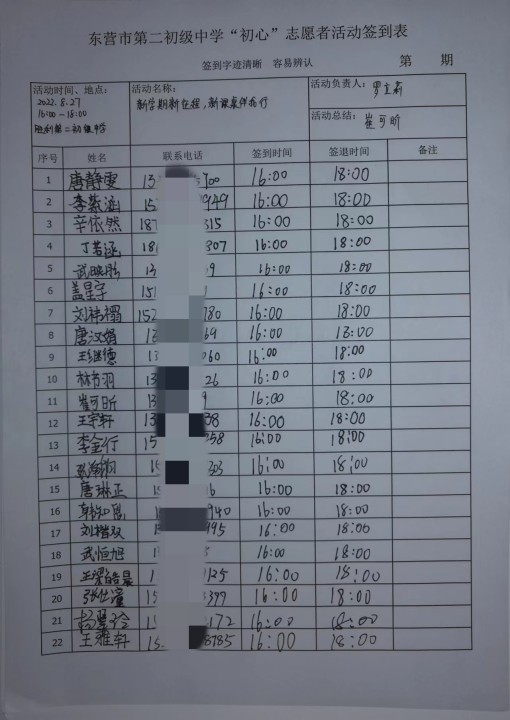 东营市第二初级中学“初心”志愿者活动签到表
签到字迹清晰 容易辨认 第 期
活动时间、地点： 活动名称： 活动负责人：
2022.8.27 新学期新征程，新课桌伴我行
16:00-18:00 活动总结：崔可昕
胜利第二初级中学
序号 姓名 联系电话 签到时间 签退时间 备注
1 唐静雯 13 700 16:00 18:00
2 李紫涵 15 949 16:00 18:00
3 辛依然 187 315 16:00 18:00
4 丁若涵 18 807 16:00 18:00
5 武映彤 13 9 16:00 18:00
6 盖星宇 151 16:00 18:00
7 刘祎禢 152 780 16:00 18:00
8 唐汉娟 13 69 16:00 18:00
9 王继德 13 060 16:00 18:00
10 林书羽 13 26 16:00 18:00
11 崔可昕 13 9 16:00 18:00
12 王宇轩 13 38 16:00 18:00
13 李金行 15 358 16:00 18:00
14 15 303 16:00 18:00
15 唐琳正 15 6 16:00 18:00
16 940 16:00 18:00
17 刘楷双 995 16:00 18:00
18 武恒旭 1 16:00 18:00
19 王梁皓晨 1 125 16:00 18:00
20 15 399 16:00 18:00
21 15 172 16:00 18:00
22 王雅轩 15 8785 16:00 18:00